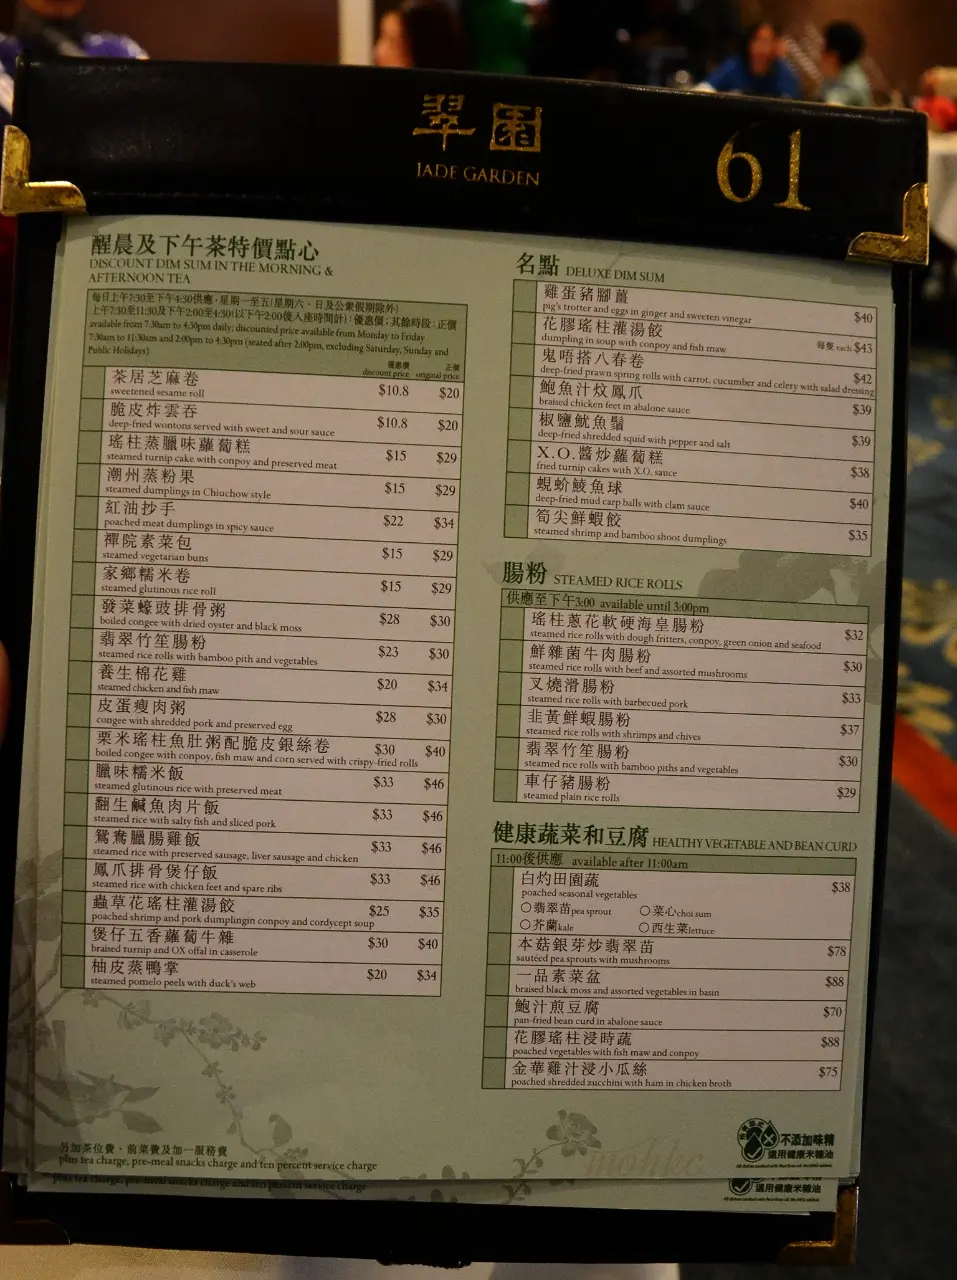 翠園
JADE GARDEN
61
醒晨及下午茶特價點心
DISCOUNT DIM SUM IN THE MORNING &
AFTERNOON TEA
每日上午7:30至下午4:30供應,星期一至五(星期六、日及公眾假期除外)
上午7:30至11:30及下午2:00至4:30(以下午2:00後入座時間計):優惠價;其餘時段:正價
available from 7:30am to 4:30pm daily; discounted price available from Monday to Friday
7:30am to 11:30am and 2:00pm to 4:30pm (seated after 2:00pm, excluding Saturday, Sunday and
Public Holidays)
優惠價 正價
discount price original price
茶居芝麻卷
sweetened sesame roll $10.8 $20
脆皮炸雲吞
deep-fried wontons served with sweet and sour sauce $10.8 $20
瑤柱蒸臘味蘿蔔糕
steamed turnip cake with conpoy and preserved meat $15 $29
潮州蒸粉果
steamed dumplings in Chiuchow style $15 $29
紅油抄手
poached meat dumplings in spicy sauce $22 $34
禪院素菜包
steamed vegetarian buns $15 $29
家鄉糯米卷
steamed glutinous rice roll $15 $29
發菜蠔豉排骨粥
boiled congee with dried oyster and black moss $28 $30
翡翠竹笙腸粉
steamed rice rolls with bamboo pith and vegetables $23 $30
養生棉花雞
steamed chicken and fish maw $20 $34
皮蛋瘦肉粥
congee with shredded pork and preserved egg $28 $30
栗米瑤柱魚肚粥配脆皮銀絲卷
boiled congee with conpoy, fish maw and corn served with crispy-fried rolls $30 $40
臘味糯米飯
steamed glutinous rice with preserved meat $33 $46
翻生鹹魚肉片飯
steamed rice with salty fish and sliced pork $33 $46
鴛鴦臘腸雞飯
steamed rice with preserved sausage, liver sausage and chicken $33 $46
鳳爪排骨煲仔飯
steamed rice with chicken feet and spare ribs $33 $46
蟲草花瑤柱灌湯餃
poached shrimp and pork dumplingin conpoy and cordycept soup $25 $35
煲仔五香蘿蔔牛雜
braised turnip and OX offal in casserole $30 $40
柚皮蒸鴨掌
steamed pomelo peels with duck's web $20 $34
另加茶位費,前菜費及加一服務費
plus tea charge, pre-meal snacks charge and ten percent service charge
plus tea charge, pre-meal snacks charge and ten percent service charge
名點 DELUXE DIM SUM
雞蛋豬腳薑
pig's trotter and eggs in ginger and sweeten vinegar $40
花膠瑤柱灌湯餃
dumpling in soup with conpoy and fish maw 每隻 each $43
鬼唔搭八春卷
deep-fried prawn spring rolls with carrot, cucumber and celery with salad dressing $42
鮑魚汁炆鳳爪
braised chicken feet in abalone sauce $39
椒鹽魷魚鬚
deep-fried shredded squid with pepper and salt $39
X.O.醬炒蘿蔔糕
fried turnip cakes with X.O. sauce $38
蜆蚧鯪魚球
deep-fried mud carp balls with clam sauce $40
筍尖鮮蝦餃
steamed shrimp and bamboo shoot dumplings $35
腸粉 STEAMED RICE ROLLS
供應至下午3:00 available until 3:00pm
瑤柱蔥花軟硬海皇腸粉
steamed rice rolls with dough fritters, conpoy, green onion and seafood $32
鮮雜菌牛肉腸粉
steamed rice rolls with beef and assorted mushrooms $30
叉燒滑腸粉
steamed rice rolls with barbecued pork $33
韭黃鮮蝦腸粉
steamed rice rolls with shrimps and chives $37
翡翠竹笙腸粉
steamed rice rolls with bamboo piths and vegetables $30
車仔豬腸粉
steamed plain rice rolls $29
健康蔬菜和豆腐 HEALTHY VEGETABLE AND BEAN CURD
11:00後供應 available after 11:00am
白灼田園蔬
poached seasonal vegetables $38
翡翠苗pea sprout 菜心choi sum
芥蘭kale 西生菜lettuce
本菇銀芽炒翡翠苗
sautéed pea sprouts with mushrooms $78
一品素菜盆
braised black moss and assorted vegetables in basin $88
鮑汁煎豆腐
pan-fried bean curd in abalone sauce $70
花膠瑤柱浸時蔬
poached vegetables with fish maw and conpoy $88
金華雞汁浸小瓜絲
poached shredded zucchini with ham in chicken broth $75
mohkc
不添加味精
選用健康米糠油
選用健康米糠油